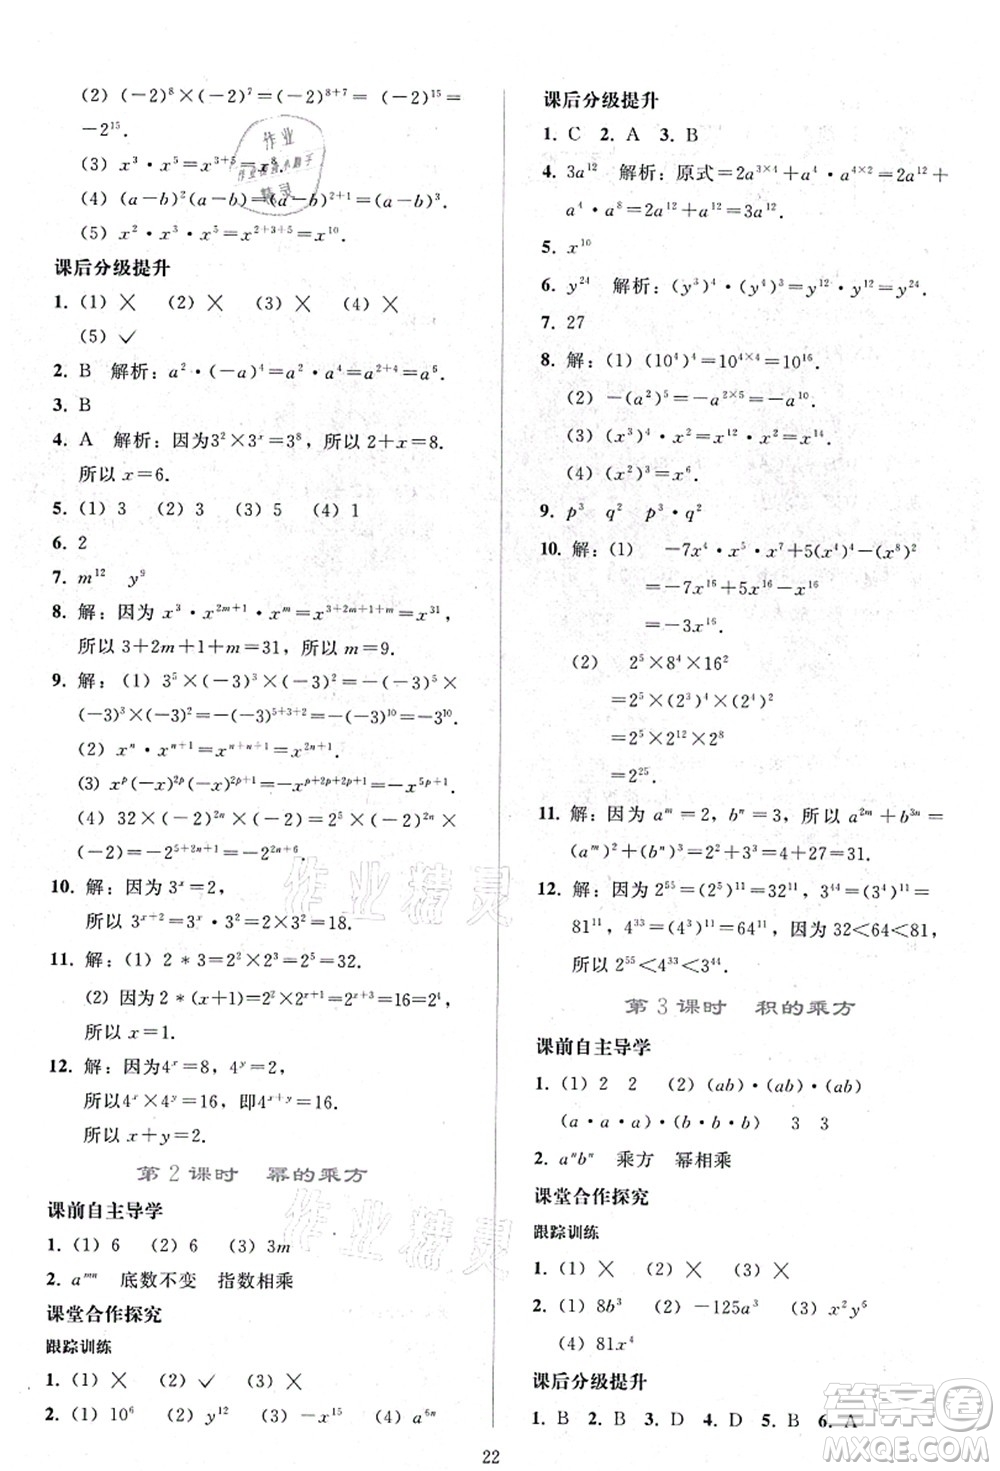 (2) (-2)⁸×(-2)⁷=(-2)⁸⁺⁷=(-2)¹⁵=
-2¹⁵.
(3) x³·x⁵=x³⁺⁵=x⁸.
(4) (a-b)²(a-b)=(a-b)²⁺¹=(a-b)³.
(5) x²·x³·x⁵=x²⁺³⁺⁵=x¹⁰.
课后分级提升
1. (1) × (2) × (3) × (4) ×
(5) ✓
2. B 解析:a²·(-a)⁴=a²·a⁴=a²⁺⁴=a⁶.
3. B
4. A 解析:因为3²×3ˣ=3⁸,所以2+x=8.
所以x=6.
5. (1) 3 (2) 3 (3) 5 (4) 1
6. 2
7. m¹² y⁹
8. 解:因为x³·x²ᵐ⁺¹·xᵐ=x³⁺²ᵐ⁺¹⁺ᵐ=x³¹,
所以3+2m+1+m=31,所以m=9.
9. 解:(1) 3⁵×(-3)³×(-3)²=-(-3)⁵×
(-3)³×(-3)²=-(-3)⁵⁺³⁺²=-(-3)¹⁰=-3¹⁰.
(2) xⁿ·xⁿ⁺¹=xⁿ⁺ⁿ⁺¹=x²ⁿ⁺¹.
(3) xᵖ(-x)²ᵖ(-x)²ᵖ⁺¹=-xᵖ⁺²ᵖ⁺²ᵖ⁺¹=-x⁵ᵖ⁺¹.
(4) 32×(-2)²ⁿ×(-2)=2⁵×(-2)²ⁿ×
(-2)=-2⁵⁺²ⁿ⁺¹=-2²ⁿ⁺⁶.
10. 解:因为3ˣ=2,
所以3ˣ⁺²=3ˣ·3²=2×3²=18.
11. 解:(1) 2*3=2²×2³=32.
(2) 因为2*(x+1)=2²×2ˣ⁺¹=2ˣ⁺³=16=2⁴,
所以x=1.
12. 解:因为4ˣ=8,4ʸ=2,
所以4ˣ×4ʸ=16,即4ˣ⁺ʸ=16.
所以x+y=2.
第2课时 幂的乘方
课前自主导学
1. (1) 6 (2) 6 (3) 3m
2. aᵐⁿ 底数不变 指数相乘
课堂合作探究
跟踪训练
1. (1) × (2) ✓ (3) × (4) ×
2. (1) 10⁶ (2) y¹² (3) -x¹² (4) a⁶ⁿ
课后分级提升
1. C 2. A 3. B
4. 3a¹² 解析:原式=2a³ˣ⁴+a⁴·a⁴ˣ²=2a¹²+
a⁴·a⁸=2a¹²+a¹²=3a¹².
5. x¹⁰
6. y²⁴ 解析:(y³)⁴·(y⁴)³=y¹²·y¹²=y²⁴.
7. 27
8. 解:(1) (10⁴)⁴=10⁴ˣ⁴=10¹⁶.
(2) -(a²)⁵=-a²ˣ⁵=-a¹⁰.
(3) (x³)⁴·x²=x¹²·x²=x¹⁴.
(4) (x²)³=x⁶.
9. p³ q² p³·q²
10. 解:(1) -7x⁴·x⁵·x⁷+5(x⁴)⁴-(x⁸)²
=-7x¹⁶+5x¹⁶-x¹⁶
=-3x¹⁶.
(2) 2⁵×8⁴×16²
=2⁵×(2³)⁴×(2⁴)²
=2⁵×2¹²×2⁸
=2²⁵.
11. 解:因为aᵐ=2,bⁿ=3,所以a²ᵐ+b³ⁿ=
(aᵐ)²+(bⁿ)³=2²+3³=4+27=31.
12. 解:因为2⁵⁵=(2⁵)¹¹=32¹¹,3⁴⁴=(3⁴)¹¹=
81¹¹,4³³=(4³)¹¹=64¹¹,因为32<64<81,
所以2⁵⁵<4³³<3⁴⁴.
第3课时 积的乘方
课前自主导学
1. (1) 2 2 (2) (ab)·(ab)·(ab)
(a·a·a)·(b·b·b) 3 3
2. aⁿbⁿ 乘方 幂相乘
课堂合作探究
跟踪训练
1. (1) × (2) × (3) ×
2. (1) 8b³ (2) -125a³ (3) x²y⁶
(4) 81x⁴
课后分级提升
1. B 2. B 3. D 4. D 5. B 6. A
22
作业精灵
作业精灵
答案圈
MXQE.COM